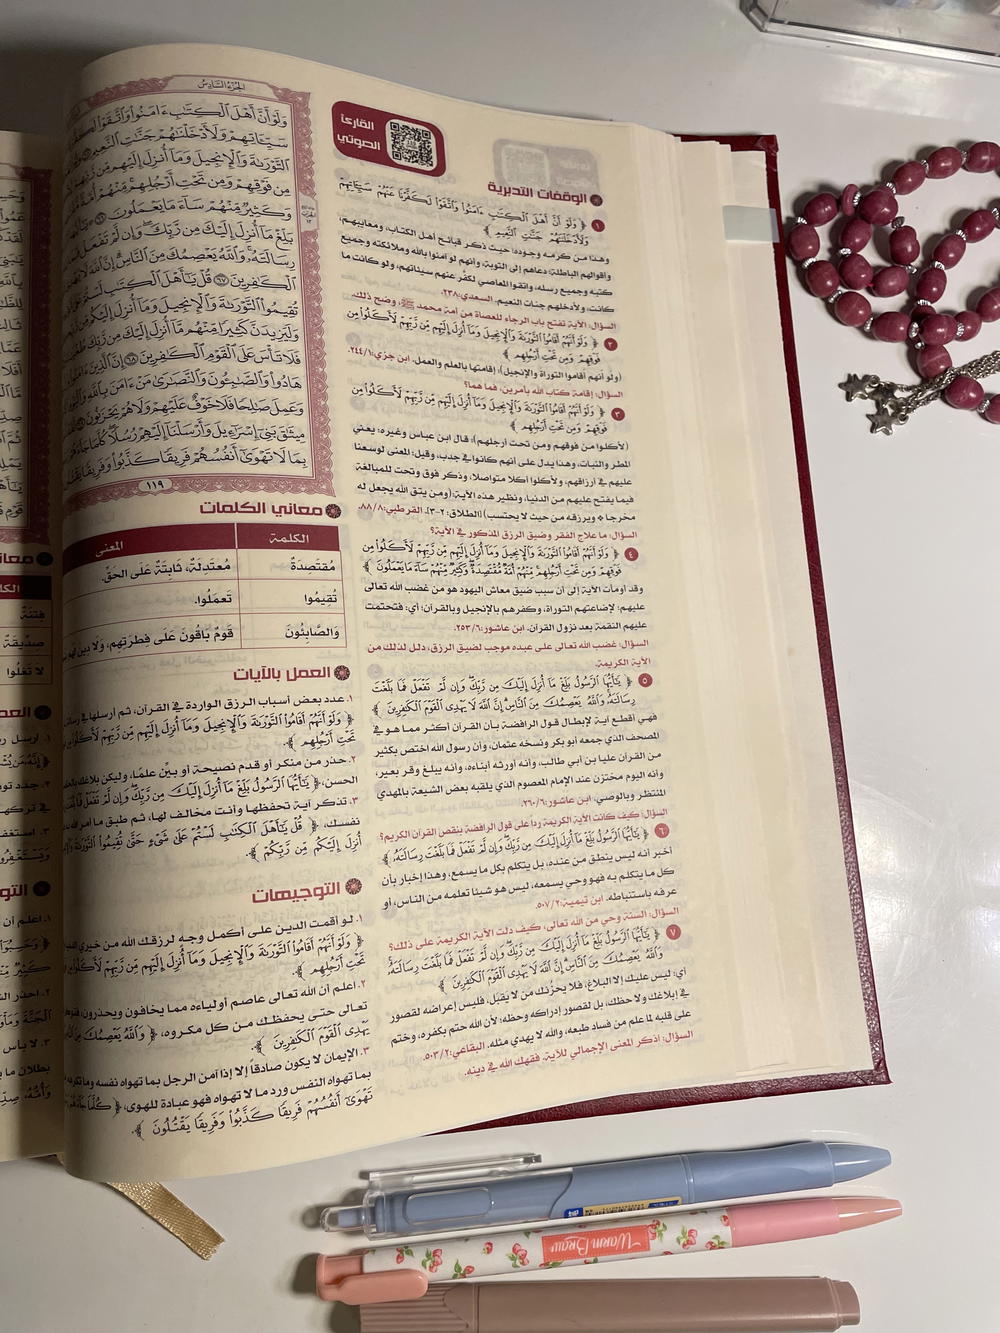 الجزء السادس
وَلَوْ أَنَّ أَهْلَ ٱلْكِتَٰبِ ءَامَنُوا۟ وَٱتَّقَوْا۟
سَيِّـَٔاتِهِمْ وَلَأَدْخَلْنَٰهُمْ جَنَّٰتِ ٱلنَّعِيمِ
ٱلتَّوْرَىٰةَ وَٱلْإِنجِيلَ وَمَآ أُنزِلَ إِلَيْهِم مِّن
مِن فَوْقِهِمْ وَمِن تَحْتِ أَرْجُلِهِم مِّنْهُمْ أُمَّةٌ
وَكَثِيرٌ مِّنْهُمْ سَآءَ مَا يَعْمَلُونَ
بَلِّغْ مَآ أُنزِلَ إِلَيْكَ مِن رَّبِّكَ وَإِن لَّمْ تَفْعَلْ
رِسَالَتَهُۥ وَٱللَّهُ يَعْصِمُكَ مِنَ ٱلنَّاسِ إِنَّ ٱللَّهَ
ٱلْكَٰفِرِينَ ٦٧ قُلْ يَٰٓأَهْلَ ٱلْكِتَٰبِ لَسْتُمْ
تُقِيمُوا۟ ٱلتَّوْرَىٰةَ وَٱلْإِنجِيلَ وَمَآ أُنزِلَ إِلَيْكُم
وَلَيَزِيدَنَّ كَثِيرًا مِّنْهُم مَّآ أُنزِلَ إِلَيْكَ مِن رَّبِّكَ
فَلَا تَأْسَ عَلَى ٱلْقَوْمِ ٱلْكَٰفِرِينَ ٦٨ إِنَّ ٱلَّذِينَ
هَادُوا۟ وَٱلصَّٰبِـُٔونَ وَٱلنَّصَٰرَىٰ مَنْ ءَامَنَ بِٱللَّهِ
وَعَمِلَ صَٰلِحًا فَلَا خَوْفٌ عَلَيْهِمْ وَلَا هُمْ يَحْزَنُونَ
مِيثَٰقَ بَنِىٓ إِسْرَٰٓءِيلَ وَأَرْسَلْنَآ إِلَيْهِمْ رُسُلًا كُلَّمَا
بِمَا لَا تَهْوَىٰٓ أَنفُسُهُمْ فَرِيقًا كَذَّبُوا۟ وَفَرِيقًا
١١٩
القارئ
الصوتي
الوقفات التدبرية
١ ﴿ وَلَوْ أَنَّ أَهْلَ ٱلْكِتَٰبِ ءَامَنُوا۟ وَٱتَّقَوْا۟ لَكَفَّرْنَا عَنْهُمْ سَيِّـَٔاتِهِمْ
وَلَأَدْخَلْنَٰهُمْ جَنَّٰتِ ٱلنَّعِيمِ ﴾
وهذا من كرمه وجوده؛ حيث ذكر قبائح أهل الكتاب، ومعايبهم،
وأقوالهم الباطلة؛ دعاهم إلى التوبة، وأنهم لو آمنوا بالله وملائكته وجميع
كتبه وجميع رسله، واتقوا المعاصي لكفَّر عنهم سيئاتهم، ولو كانت ما
كانت، ولأدخلهم جنات النعيم. السعدي: ٢٣٨.
السؤال: الآية تفتح باب الرجاء للعصاة من أمة محمد ﷺ، وضح ذلك.
٢ ﴿ وَلَوْ أَنَّهُمْ أَقَامُوا۟ ٱلتَّوْرَىٰةَ وَٱلْإِنجِيلَ وَمَآ أُنزِلَ إِلَيْهِم مِّن رَّبِّهِمْ لَأَكَلُوا۟ مِن
فَوْقِهِمْ وَمِن تَحْتِ أَرْجُلِهِم ﴾
(ولو أنهم أقاموا التوراة والإنجيل)؛ إقامتها بالعلم والعمل. ابن جزي: ٢٤٤/١.
السؤال: إقامة كتاب الله بأمرين، فما هما؟
٣ ﴿ وَلَوْ أَنَّهُمْ أَقَامُوا۟ ٱلتَّوْرَىٰةَ وَٱلْإِنجِيلَ وَمَآ أُنزِلَ إِلَيْهِم مِّن رَّبِّهِمْ لَأَكَلُوا۟ مِن
فَوْقِهِمْ وَمِن تَحْتِ أَرْجُلِهِم ﴾
(لأكلوا من فوقهم ومن تحت أرجلهم): قال ابن عباس وغيره: يعني
المطر والنبات، وهذا يدل على أنهم كانوا في جدب، وقيل: المعنى لوسعنا
عليهم في أرزاقهم، ولأكلوا أكلا متواصلا، وذكر فوق وتحت للمبالغة
فيما يفتح عليهم من الدنيا، ونظير هذه الآية: (ومن يتق الله يجعل له
مخرجا * ويرزقه من حيث لا يحتسب) [الطلاق: ٢-٣]. القرطبي: ٨٨/٨.
السؤال: ما علاج الفقر وضيق الرزق المذكور في الآية؟
٤ ﴿ وَلَوْ أَنَّهُمْ أَقَامُوا۟ ٱلتَّوْرَىٰةَ وَٱلْإِنجِيلَ وَمَآ أُنزِلَ إِلَيْهِم مِّن رَّبِّهِمْ لَأَكَلُوا۟ مِن
فَوْقِهِمْ وَمِن تَحْتِ أَرْجُلِهِم مِّنْهُمْ أُمَّةٌ مُّقْتَصِدَةٌ وَكَثِيرٌ مِّنْهُمْ سَآءَ مَا يَعْمَلُونَ ﴾
وقد أومأت الآية إلى أن سبب ضيق معاش اليهود هو من غضب الله تعالى
عليهم؛ لإضاعتهم التوراة، وكفرهم بالإنجيل وبالقرآن؛ أي: فتحتمت
عليهم النقمة بعد نزول القرآن. ابن عاشور: ٢٥٣/٦.
السؤال: غضب الله تعالى على عبده موجب لضيق الرزق، دلل لذلك من
الآية الكريمة.
٥ ﴿ يَٰٓأَيُّهَا ٱلرَّسُولُ بَلِّغْ مَآ أُنزِلَ إِلَيْكَ مِن رَّبِّكَ وَإِن لَّمْ تَفْعَلْ فَمَا بَلَّغْتَ
رِسَالَتَهُۥ وَٱللَّهُ يَعْصِمُكَ مِنَ ٱلنَّاسِ إِنَّ ٱللَّهَ لَا يَهْدِى ٱلْقَوْمَ ٱلْكَٰفِرِينَ ﴾
فهي أقطع آية لإبطال قول الرافضة بأن القرآن أكثر مما هو في
المصحف الذي جمعه أبو بكر ونسخه عثمان، وأن رسول الله اختص بكثير
من القرآن عليا بن أبي طالب، وأنه أورثه أبناءه، وأنه يبلغ وقر بعير،
وأنه اليوم مختزن عند الإمام المعصوم الذي يلقبه بعض الشيعة بالمهدي
المنتظر وبالوصي. ابن عاشور: ٢٦٠/٦.
السؤال: كيف كانت الآية الكريمة ردا على قول الرافضة بنقص القرآن الكريم؟
٦ ﴿ يَٰٓأَيُّهَا ٱلرَّسُولُ بَلِّغْ مَآ أُنزِلَ إِلَيْكَ مِن رَّبِّكَ وَإِن لَّمْ تَفْعَلْ فَمَا بَلَّغْتَ رِسَالَتَهُۥ ﴾
أخبر أنه ليس ينطق من عنده، بل يتكلم بكل ما يسمع، وهذا إخبار بأن
كل ما يتكلم به فهو وحي يسمعه، ليس هو شيئا تعلمه من الناس، أو
عرفه باستنباطه. ابن تيمية: ٥٠٧/٢.
السؤال: السنة وحي من الله تعالى، كيف دلت الآية الكريمة على ذلك؟
٧ ﴿ يَٰٓأَيُّهَا ٱلرَّسُولُ بَلِّغْ مَآ أُنزِلَ إِلَيْكَ مِن رَّبِّكَ وَإِن لَّمْ تَفْعَلْ فَمَا بَلَّغْتَ رِسَالَتَهُۥ
وَٱللَّهُ يَعْصِمُكَ مِنَ ٱلنَّاسِ إِنَّ ٱللَّهَ لَا يَهْدِى ٱلْقَوْمَ ٱلْكَٰفِرِينَ ﴾
أي: ليس عليك إلا البلاغ، فلا يحزنك من لا يقبل، فليس إعراضه لقصور
في إبلاغك ولا حظك، بل لقصور إدراكه وحظه؛ لأن الله حتم بكفره، وختم
على قلبه لما علم من فساد طبعه، والله لا يهدي مثله. البقاعي: ٥٠٣/٢.
السؤال: اذكر المعنى الإجمالي للآية، فقهك الله في دينه.
معاني الكلمات
الكلمة المعنى
مُقْتَصِدَةٌ مُعْتَدِلَةٌ، ثَابِتَةٌ عَلَى الحَقِّ.
تُقِيمُوا تَعمَلُوا.
وَالصَّابِئُونَ قَومٌ بَاقُونَ عَلَى فِطرَتِهِم، وَلَا دِينَ
العمل بالآيات
١. عدد بعض أسباب الرزق الواردة في القرآن، ثم أرسلها في
﴿ وَلَوْ أَنَّهُمْ أَقَامُوا۟ ٱلتَّوْرَىٰةَ وَٱلْإِنجِيلَ وَمَآ أُنزِلَ إِلَيْهِم مِّن رَّبِّهِمْ لَأَكَلُوا۟
تَحْتِ أَرْجُلِهِم ﴾.
٢. حذر من منكر أو قدم نصيحة أو بيّن علمًا، وليكن بلاغك
الحسن، ﴿ يَٰٓأَيُّهَا ٱلرَّسُولُ بَلِّغْ مَآ أُنزِلَ إِلَيْكَ مِن رَّبِّكَ وَإِن لَّمْ تَفْعَلْ
٣. تذكر آية تحفظها وأنت مخالف لها، ثم طبق ما أمر الله
نفسك، ﴿ قُلْ يَٰٓأَهْلَ ٱلْكِتَٰبِ لَسْتُمْ عَلَىٰ شَىْءٍ حَتَّىٰ تُقِيمُوا۟ ٱلتَّوْرَىٰةَ
أُنزِلَ إِلَيْكُم مِّن رَّبِّكُمْ ﴾.
التوجيهات
١. لو أقمت الدين على أكمل وجه لرزقك الله من خيري
﴿ وَلَوْ أَنَّهُمْ أَقَامُوا۟ ٱلتَّوْرَىٰةَ وَٱلْإِنجِيلَ وَمَآ أُنزِلَ إِلَيْهِم مِّن رَّبِّهِمْ لَأَكَلُوا۟
تَحْتِ أَرْجُلِهِم ﴾.
٢. اعلم أن الله تعالى عاصم أولياءه مما يخافون ويحذرون،
تعالى حتى يحفظك من كل مكروه، ﴿ وَٱللَّهُ يَعْصِمُكَ مِنَ
يَهْدِى ٱلْقَوْمَ ٱلْكَٰفِرِينَ ﴾.
٣. الإيمان لا يكون صادقاً إلا إذا آمن الرجل بما تهواه نفسه وما
بما تهواه النفس ورد ما لا تهواه فهو عبادة للهوى، ﴿ كُلَّمَا جَآءَهُمْ
تَهْوَىٰٓ أَنفُسُهُمْ فَرِيقًا كَذَّبُوا۟ وَفَرِيقًا يَقْتُلُونَ ﴾.
WARM BRAW